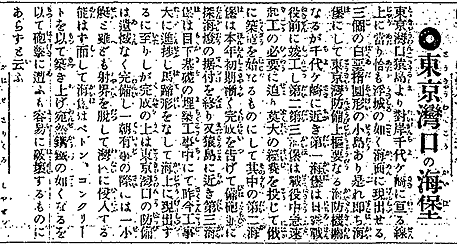 ◎東京灣口の海堡
東京灣口猿島より對岸千代ケ崎に亘る線
上に當り恰も浮城の如く海面に現出せる
三個の白堊楕圓形の小島あり是れ即ち海
堡にして東京灣防備上樞要なる海防機關
なるが千代ケ崎に近き第一海堡は日露戰
役前に竣工し第二第三海堡は戰役中急速
起工の必要に迫り莫大の經費を投じて俄
に築造を始めたるものにして其中の第二海
堡は本年初期漸く完成を告げて備砲並に
探海燈の据付を終り又猿島に近き第三海
堡は目下基礎の埋築工事中にて昨今工事
大に進捗し馬蹄形をなして海上に現出す
るに至りしが完成の上は東京灣口の防備
は遺憾なく完備し一朝有事の際には一小
艇と雖ども射界を脱して灣内に侵入する
能はず而して海堡はペトン、コンクリー
トを以て築き上げ宛然鐵の如くなるを
以て砲撃に遭ふも容易に破壞するものに
あらずと云ふ